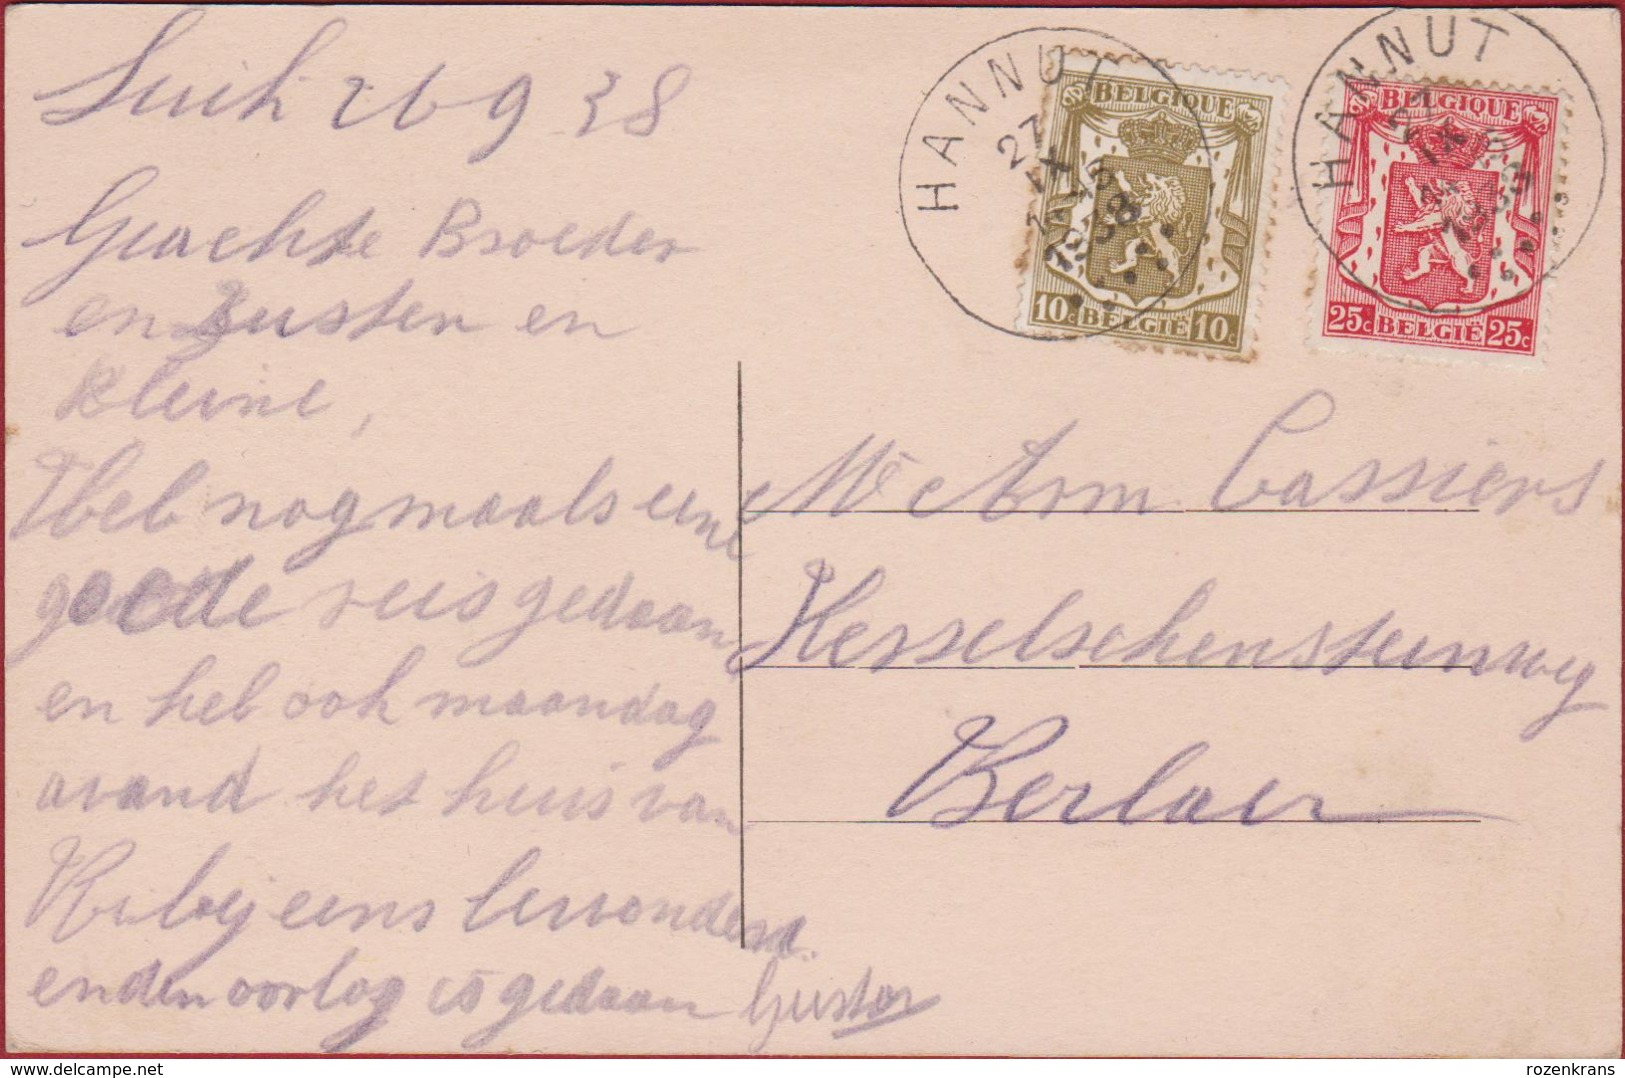 Luik 26 9 38
Geachte Broeder
en Zuster en
kleine,
Heb nogmaals eene
goede reis gedaan
en heb ook maandag
avand het huis van
eens bewonderd.
en den oorlog is gedaan Gustar
HANNUT
27
IX
1938
BELGIQUE
10c BELGIË 10c
HANNUT
27
IX
1938
BELGIQUE
25c BELGIË 25c
Mr Arm Cassiers
Hesselschensteenweg
Berlaer
delcampe.net
rozenkrans